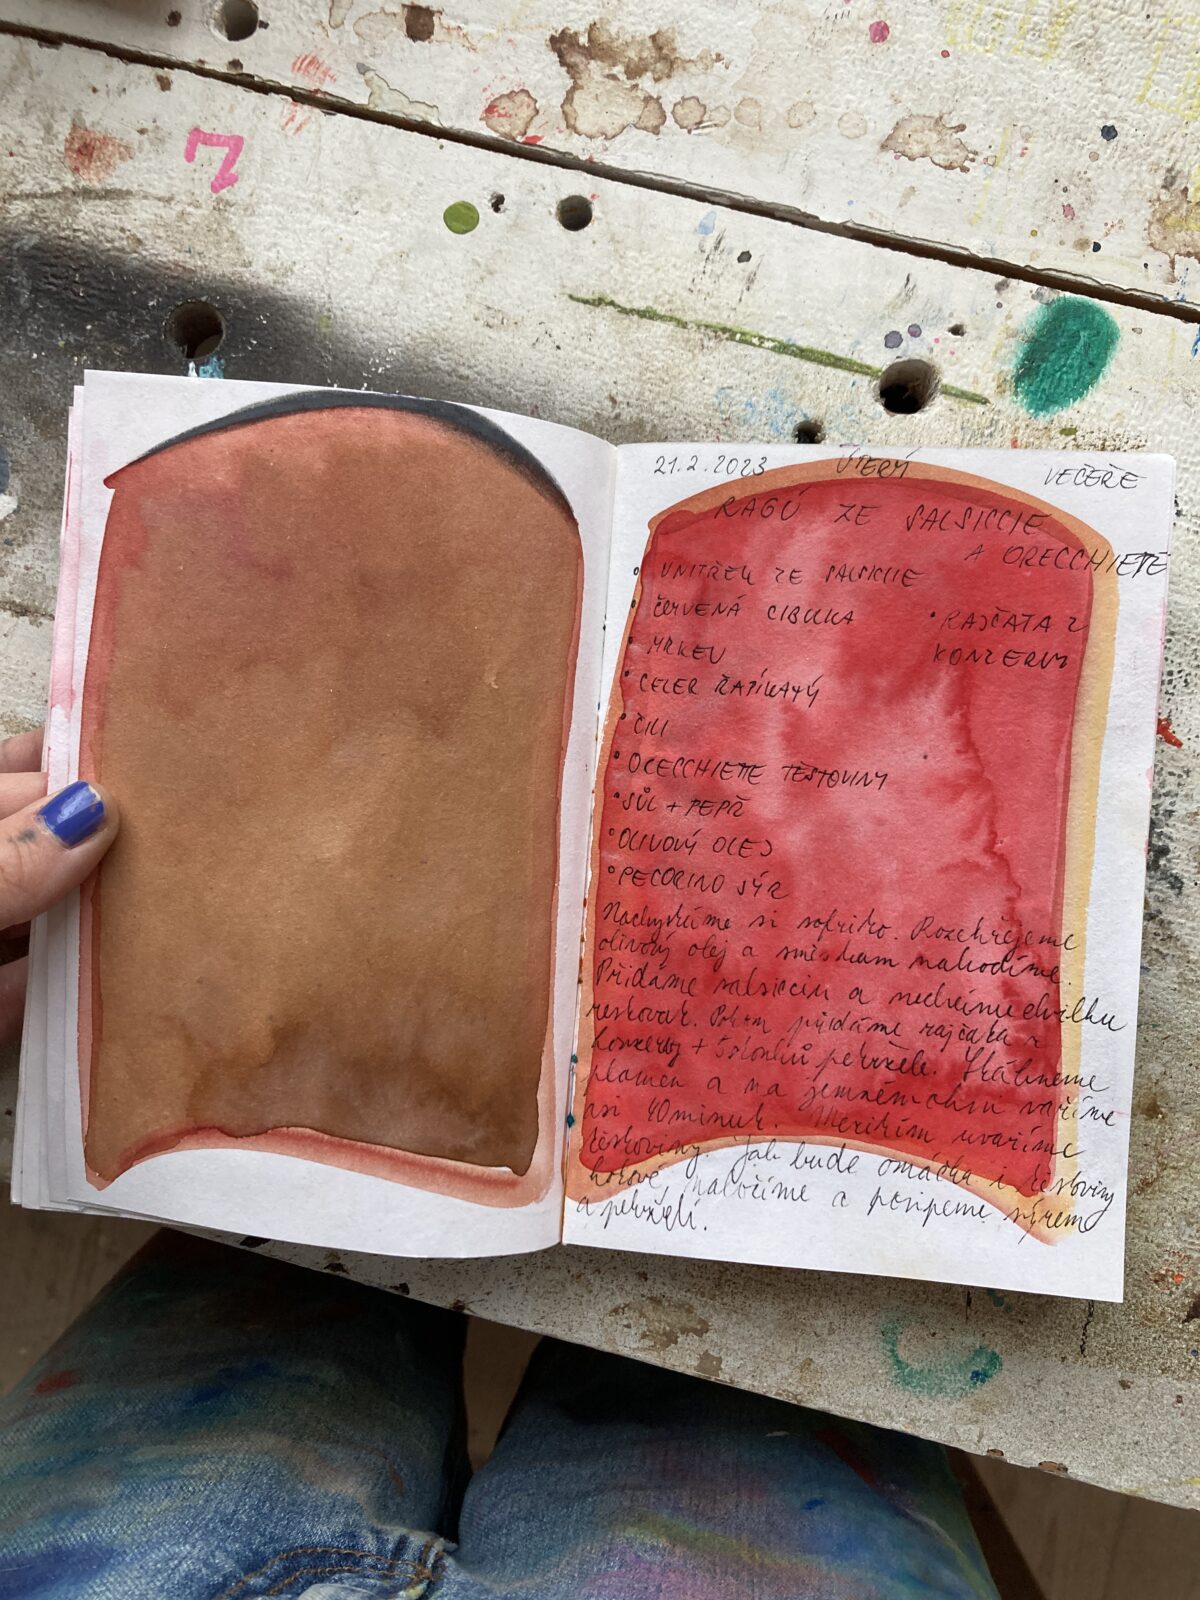 21.2.2023 ÚTERÝ VEČEŘE
RAGÚ ZE SALSICCIE
A ORECCHIETTE
• VNITŘEK ZE SALSICCIE
• ČERVENÁ CIBULKA
• RAJČATA Z
KONZERVY
• MRKEV
• CELER ŘAPÍKATÝ
• ČILI
• ORECCHIETTE TĚSTOVINY
• SŮL + PEPŘ
• OLIVOVÝ OLEJ
• PECORINO SÝR
Nachystáme si sofrito. Rozehřejeme
olivový olej a směs tam nahodíme.
Přidáme salsicciu a necháme chvilku
restovat. Potom přidáme rajčata z
konzervy + stonků petržele. Stáhneme
plamen a na jemném ohni vaříme
asi 40 minut. Mezitím uvaříme
těstoviny. Jak bude omáčka i těstoviny
hotové, naložíme a posypeme sýrem
a petrželí.